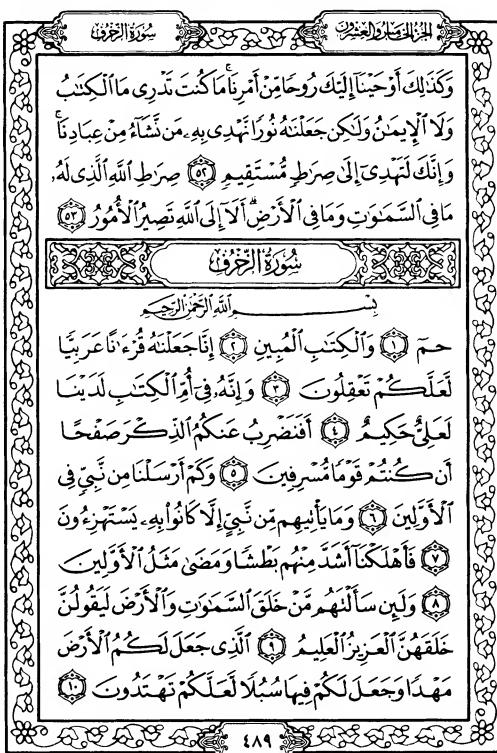 الجزء الخامس والعشرون
سورة الزخرف
وَكَذَٰلِكَ أَوْحَيْنَا إِلَيْكَ رُوحًا مِّنْ أَمْرِنَا ۚ مَا كُنتَ تَدْرِى مَا ٱلْكِتَٰبُ
وَلَا ٱلْإِيمَٰنُ وَلَٰكِن جَعَلْنَٰهُ نُورًا نَّهْدِى بِهِۦ مَن نَّشَآءُ مِنْ عِبَادِنَا ۚ
وَإِنَّكَ لَتَهْدِىٓ إِلَىٰ صِرَٰطٍ مُّسْتَقِيمٍ ٥٢ صِرَٰطِ ٱللَّهِ ٱلَّذِى لَهُۥ
مَا فِى ٱلسَّمَٰوَٰتِ وَمَا فِى ٱلْأَرْضِ ۗ أَلَآ إِلَى ٱللَّهِ تَصِيرُ ٱلْأُمُورُ ٥٣
سورة الزخرف
بِسْمِ ٱللَّهِ ٱلرَّحْمَٰنِ ٱلرَّحِيمِ
حمٓ ١ وَٱلْكِتَٰبِ ٱلْمُبِينِ ٢ إِنَّا جَعَلْنَٰهُ قُرْءَٰنًا عَرَبِيًّا
لَّعَلَّكُمْ تَعْقِلُونَ ٣ وَإِنَّهُۥ فِىٓ أُمِّ ٱلْكِتَٰبِ لَدَيْنَا
لَعَلِىٌّ حَكِيمٌ ٤ أَفَنَضْرِبُ عَنكُمُ ٱلذِّكْرَ صَفْحًا
أَن كُنتُمْ قَوْمًا مُّسْرِفِينَ ٥ وَكَمْ أَرْسَلْنَا مِن نَّبِىٍّ فِى
ٱلْأَوَّلِينَ ٦ وَمَا يَأْتِيهِم مِّن نَّبِىٍّ إِلَّا كَانُوا۟ بِهِۦ يَسْتَهْزِءُونَ
٧ فَأَهْلَكْنَآ أَشَدَّ مِنْهُم بَطْشًا وَمَضَىٰ مَثَلُ ٱلْأَوَّلِينَ
٨ وَلَئِن سَأَلْتَهُم مَّنْ خَلَقَ ٱلسَّمَٰوَٰتِ وَٱلْأَرْضَ لَيَقُولُنَّ
خَلَقَهُنَّ ٱلْعَزِيزُ ٱلْعَلِيمُ ٩ ٱلَّذِى جَعَلَ لَكُمُ ٱلْأَرْضَ
مَهْدًا وَجَعَلَ لَكُمْ فِيهَا سُبُلًا لَّعَلَّكُمْ تَهْتَدُونَ ١٠
٤٨٩